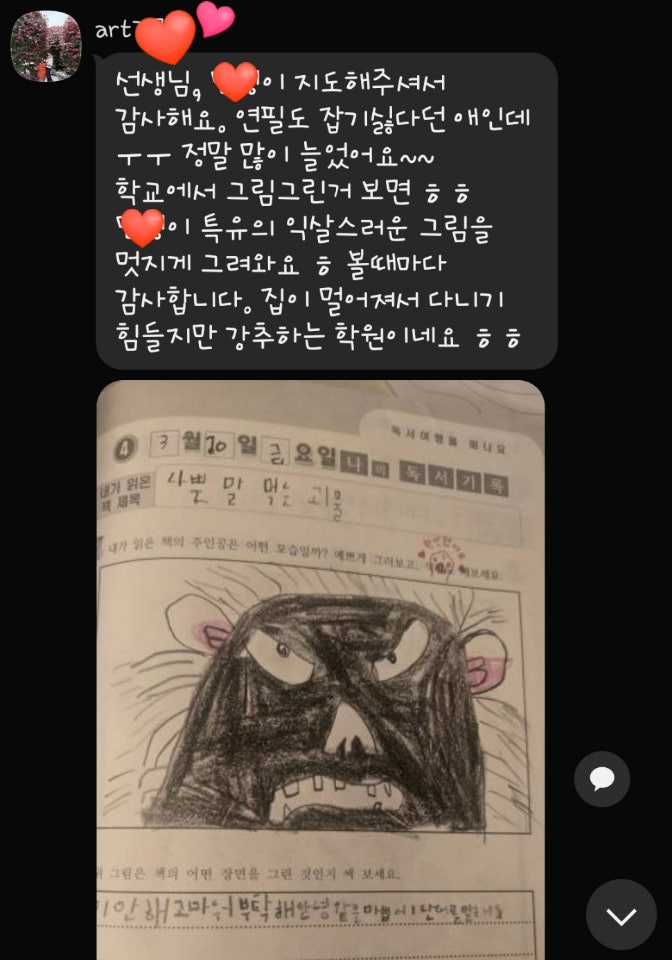 art
선생님, 이 지도해주셔서
감사해요. 연필도 잡기싫다던 애인데
ㅜㅜ 정말 많이 늘었어요~~
학교에서 그림그린거 보면 ㅎㅎ
이 특유의 익살스러운 그림을
멋지게 그려와요 ㅎ 볼때마다
감사합니다. 집이 멀어져서 다니기
힘들지만 강추하는 학원이네요 ㅎㅎ
독서여행을 떠나요
4 3월 20일 금요일 나의 독서기록
내가 읽은 책 제목 나쁜 말 먹는 괴물
내가 읽은 책의 주인공은 어떤 모습일까? 예쁘게 그려보고, 해보세요.
그림은 책의 어떤 장면을 그린 것인지 써 보세요.
미안해 고마워 부탁해 안녕 같은